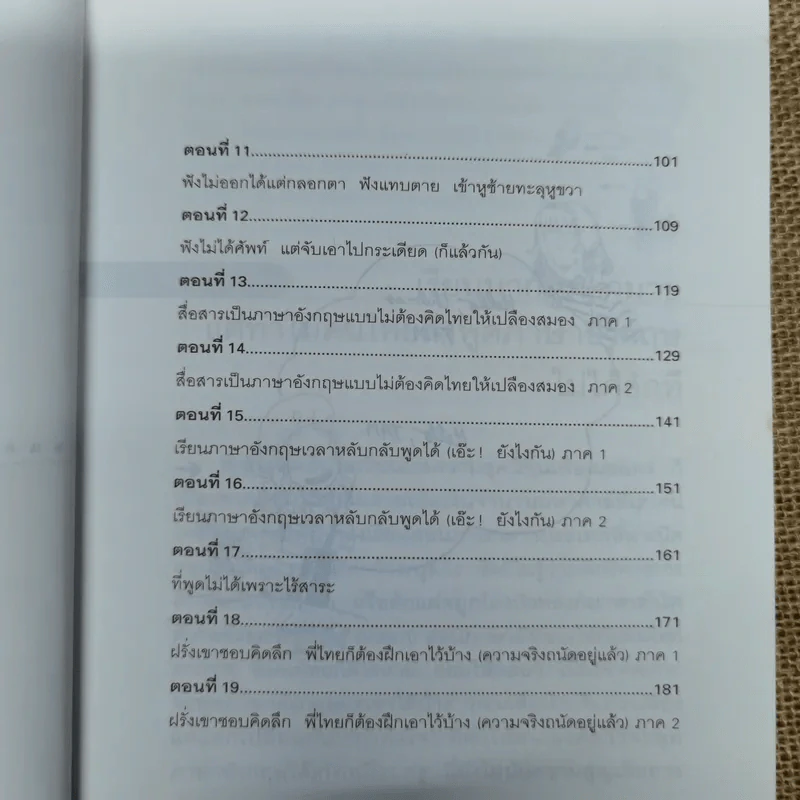 ตอนที่ 11..........101
ฟังไม่ออกได้แต่กลอกตา ฟังแทบตาย เข้าหูซ้ายทะลุหูขวา
ตอนที่ 12..........109
ฟังไม่ได้ศัพท์ แต่จับเอาไปกระเดียด (ก็แล้วกัน)
ตอนที่ 13..........119
สื่อสารเป็นภาษาอังกฤษแบบไม่ต้องคิดไทยให้เปลืองสมอง ภาค 1
ตอนที่ 14..........129
สื่อสารเป็นภาษาอังกฤษแบบไม่ต้องคิดไทยให้เปลืองสมอง ภาค 2
ตอนที่ 15..........141
เรียนภาษาอังกฤษเวลาหลับกลับพูดได้ (เอ๊ะ! ยังไงกัน) ภาค 1
ตอนที่ 16..........151
เรียนภาษาอังกฤษเวลาหลับกลับพูดได้ (เอ๊ะ! ยังไงกัน) ภาค 2
ตอนที่ 17..........161
ที่พูดไม่ได้เพราะไร้สาระ
ตอนที่ 18..........171
ฝรั่งเขาชอบคิดลึก พี่ไทยก็ต้องฝึกเอาไว้บ้าง (ความจริงถนัดอยู่แล้ว) ภาค 1
ตอนที่ 19..........181
ฝรั่งเขาชอบคิดลึก พี่ไทยก็ต้องฝึกเอาไว้บ้าง (ความจริงถนัดอยู่แล้ว) ภาค 2